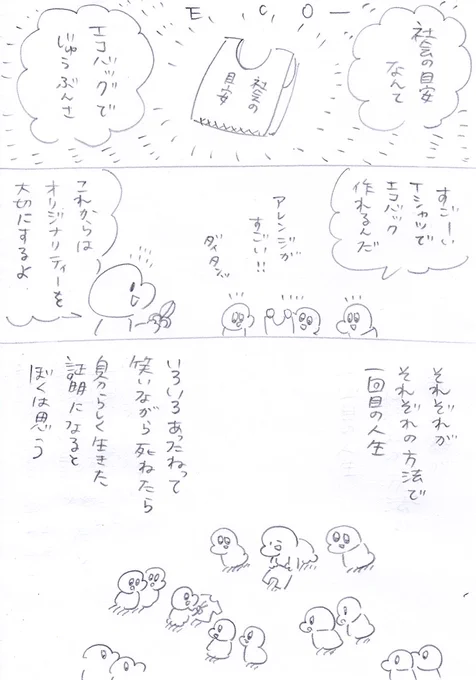 ECO―
社会の目安
なんて
社会の
目安
エコバッグで
じゅうぶんさ
すごーい
Tシャツで
エコバック
作れるんだ
アレンジが
すごい!!
ダイタンッ
これからは
オリジナリティーを
大切にするよ
それぞれが
それぞれの方法で
一回目の人生
いろいろあったねって
笑いながら死ねたら
自分らしく生きた
証明になると
ぼくは思う